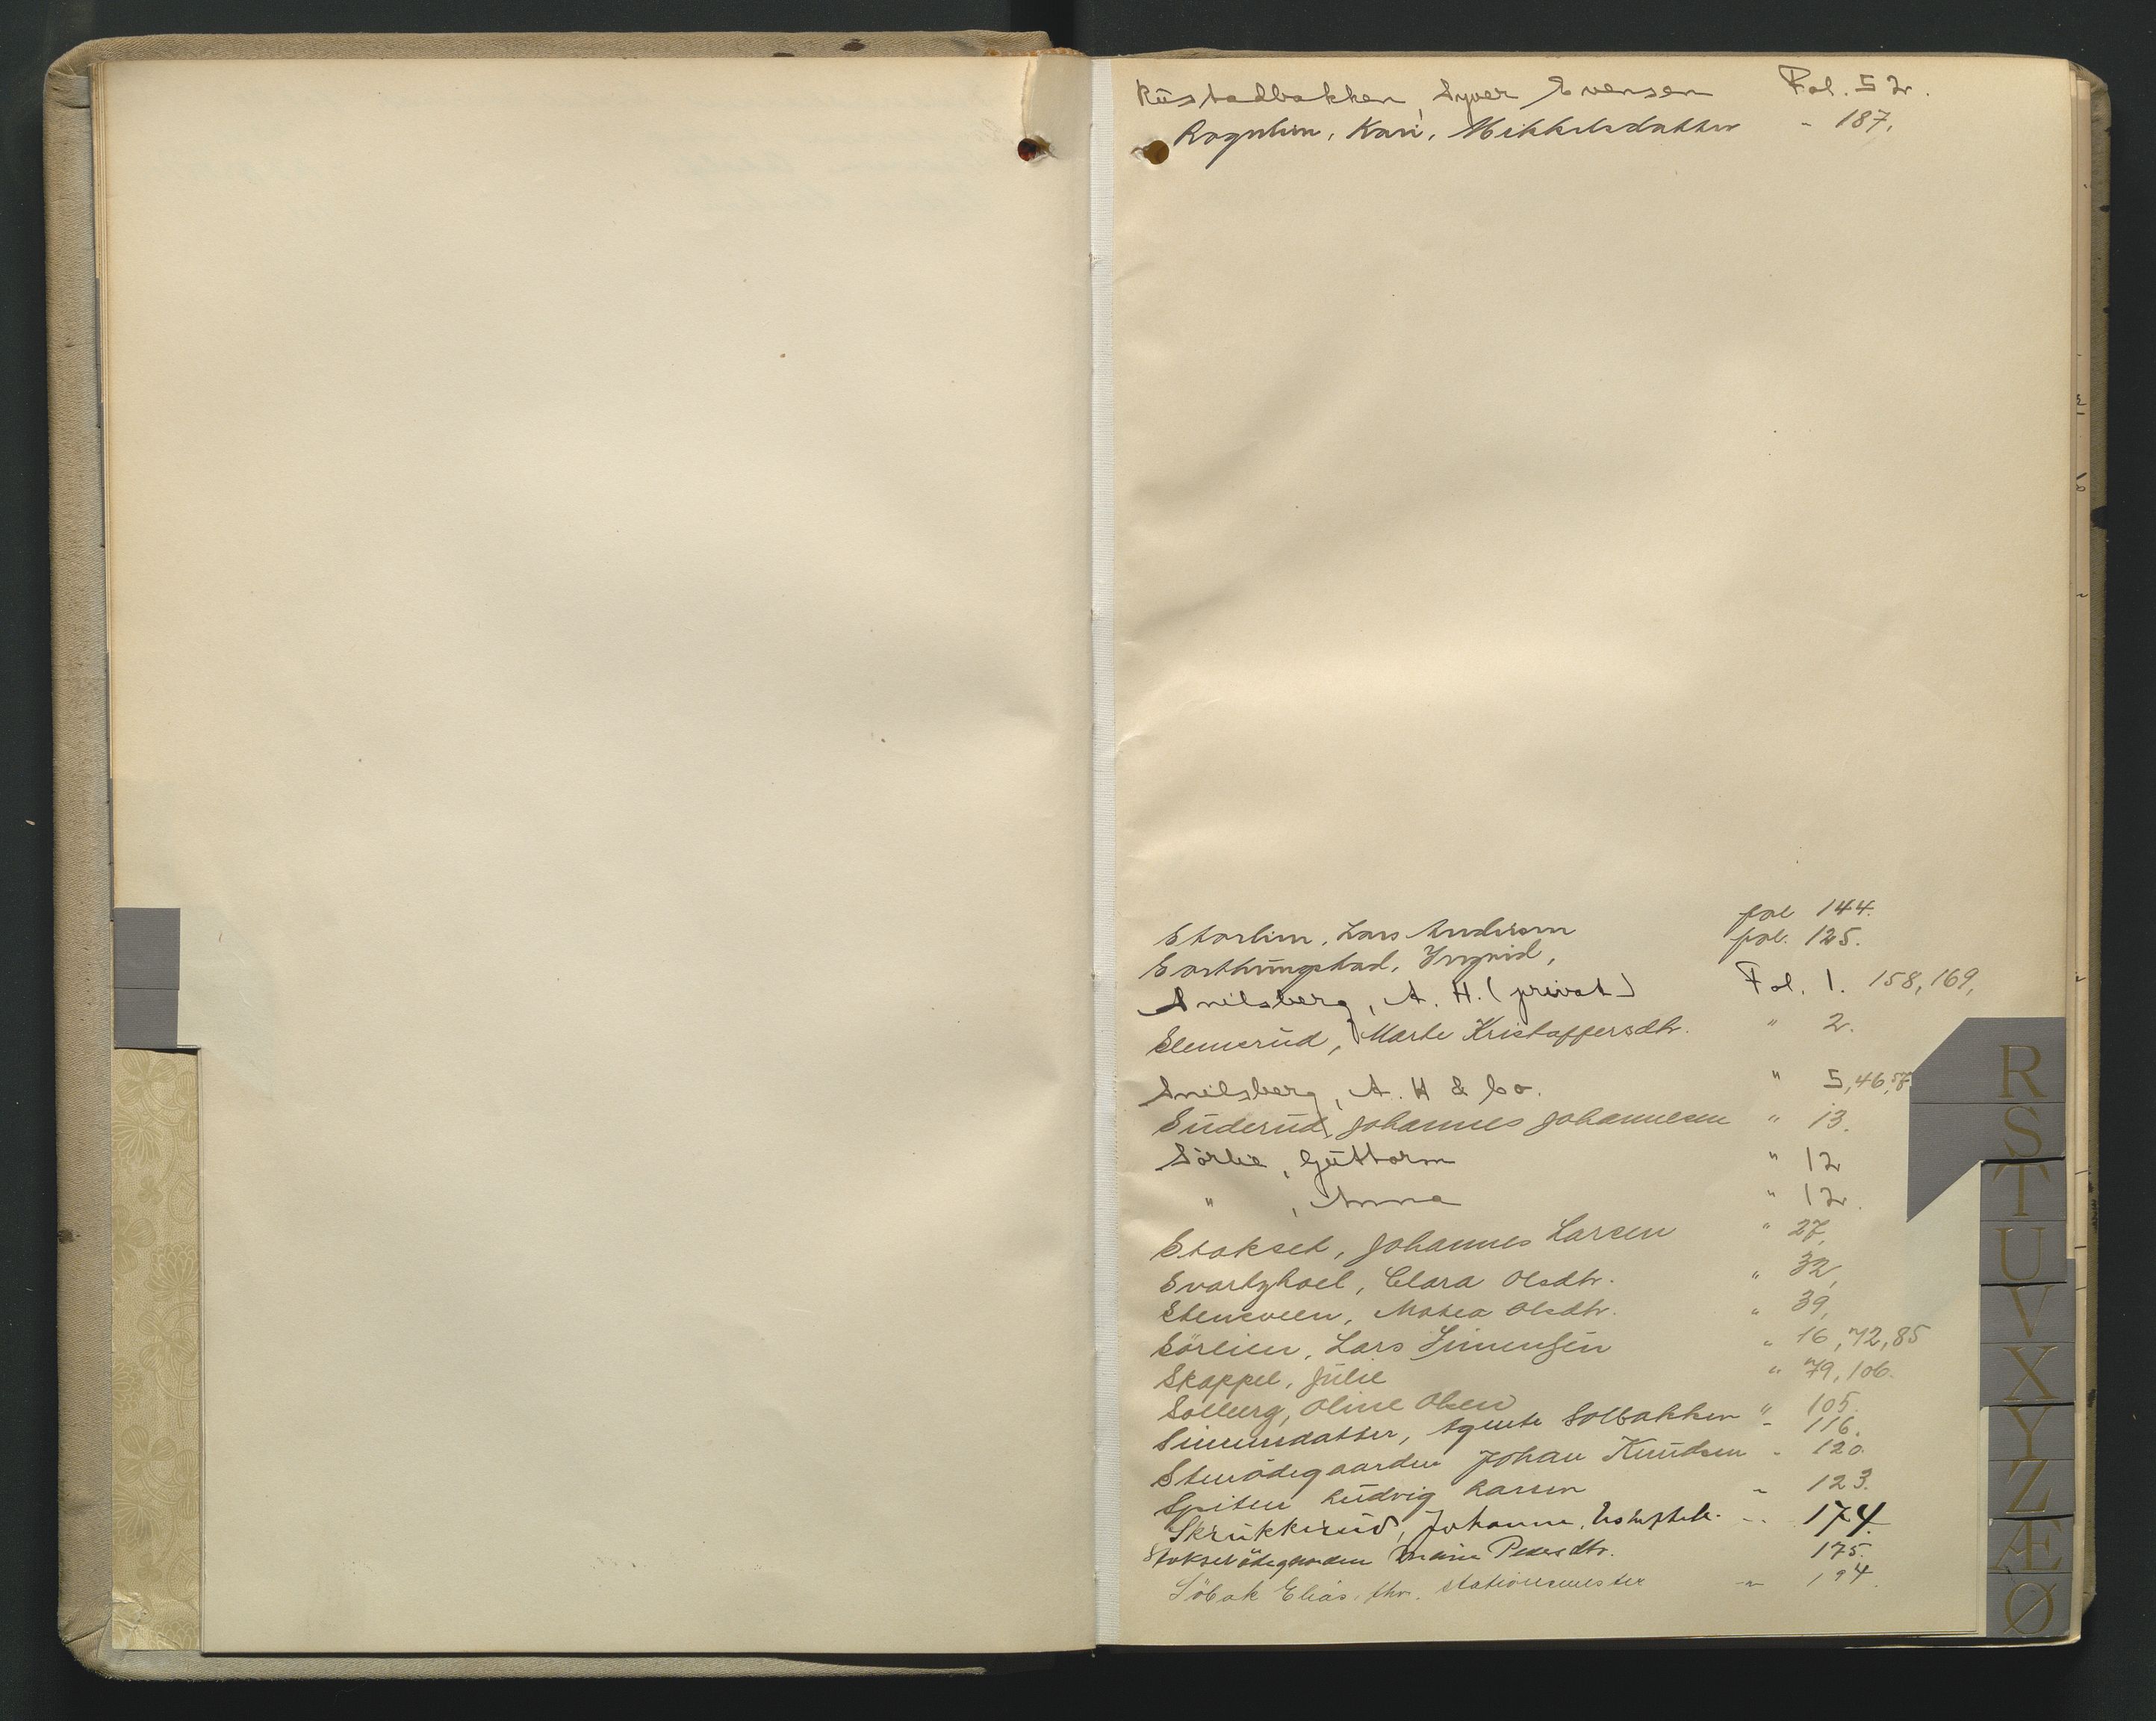 Rüstadbakken, Syver Evensen Fol. 52.
Rognlien, Kari, Mikkelsdatter - 187.
Storlien, Lars Andersen fol 144.
Sorthungstad, Ingrid, fol. 125.
Sneilsberg, A. H. (privat) Fol. 1. 158, 169,
Slemsrüd, Marte Kristoffersdtr. " 2.
Sneilsberg, A. H & Co. " 5, 46, 57
Süderüd, Johannes Johannesen " 13.
Sörlie, Güttorm " 12
" , Anna " 12.
Stokset, Johannes Larsen " 27,
Svartzhoel, Clara Olsdtr. " 32,
Stensveen, Mathea Olsdtr. " 39,
Sörlien, Lars Simensen " 16, 72, 85
Skappel, Jülie " 79, 106.
Solberg, Oline Olsen " 105.
Simensdatter, Agnete Solbakken - 116.
Stenödegaarden Johan Knüdsen - 120.
Spiten Lüdvig Larsen - 123.
Skrükkerüd, Johanne, - 174.
Stoksetödegaarden Marie Pedersdtr. 175.
Söbak Elias, fhv. Stationsmester - 194.
R
S
T
U
V
X
Y
Z
Æ
Ø